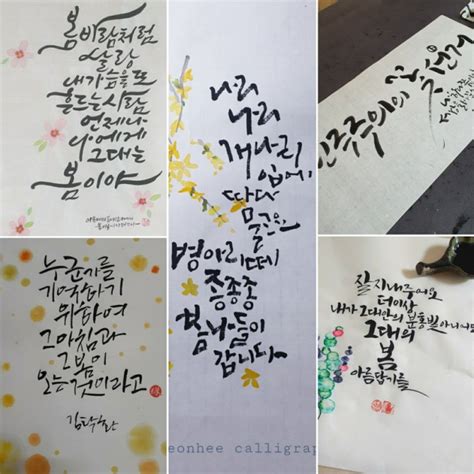 봄바람처럼
살랑
내가슴을 또
흔드는사람
언제나
나에게
그대는
봄이야
나리
나리
개나리
입에,
따다
물고요
병아리떼
종종종
봄나들이
갑니다
eonhee calligrap
민주주의의 꽃 선거
누군가를
기억하기
위하여
그아침과
그봄이
오는것이라고
김탁환
잘지내주어요
더이상
내가 그대안의 분홍빛 아니어도
그대의
봄
아름답기를